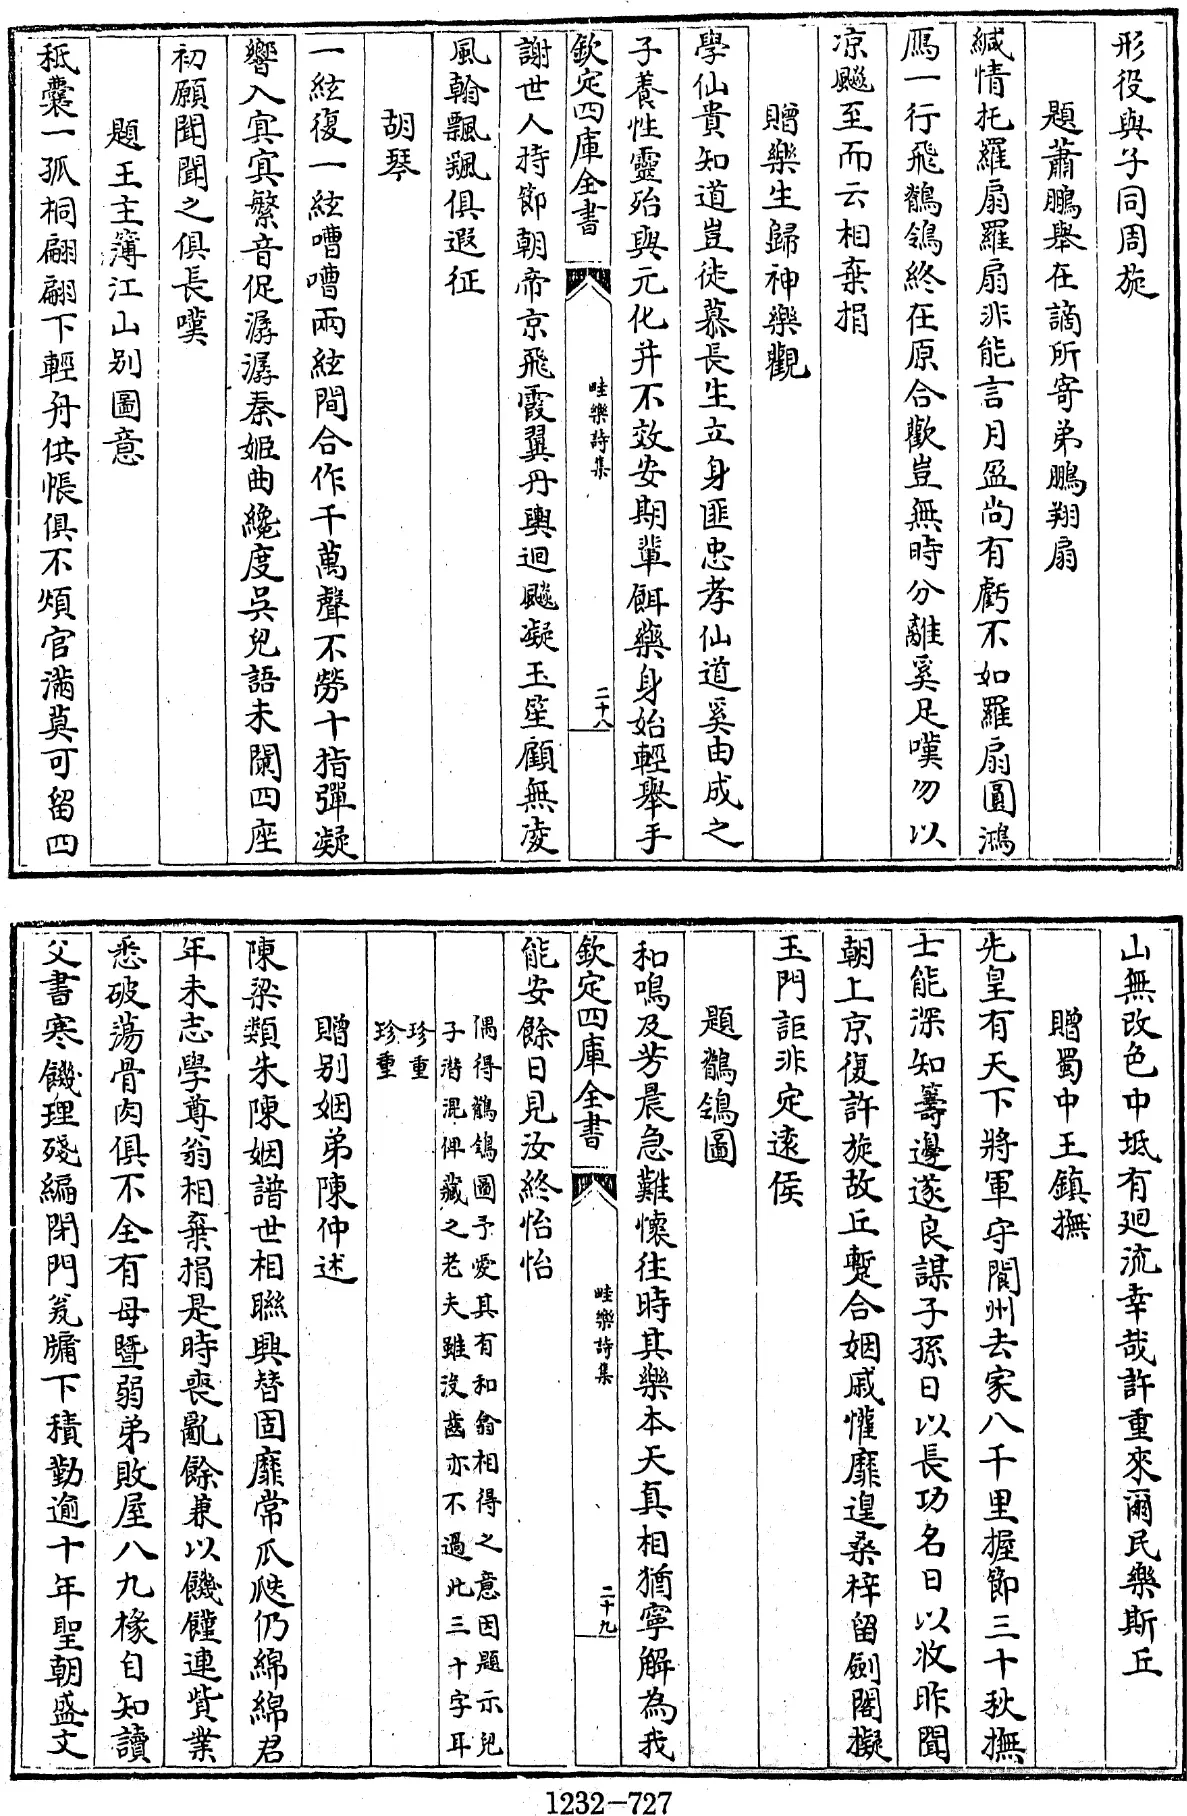 形役與子同周旋
題蕭鵬舉在謫所寄弟鵬翔扇
緘情托羅扇羅扇非能言月盈尚有虧不如羅扇圓鴻
鴈一行飛鶺鴒終在原合歡豈無時分離奚足嘆勿以
凉飈至而云相棄捐
贈樂生歸神樂觀
學仙貴知道豈徒慕長生立身匪忠孝仙道奚由成之
子養性靈殆與元化并不效安期輩餌藥身始輕舉手
欽定四庫全書
畦樂詩集
二十八
謝世人持節朝帝京飛霞翼丹輿迴飈凝玉笙顧無凌
風翰飄飄俱遐征
胡琴
一絃復一絃嘈嘈兩絃間合作千萬聲不勞十指彈凝
響入寘寘繁音促潺潺秦姬曲纔度吳兒語未闌四座
初願聞聞之俱長嘆
題王主簿江山别圖意
秖囊一孤桐翩翩下輕舟供帳俱不煩官滿莫可留四
山無改色中坻有迴流幸哉許重來爾民樂斯丘
贈蜀中王鎮撫
先皇有天下將軍守閬州去家八千里握節三十秋撫
士能深知籌邊遂良謀子孫日以長功名日以收昨聞
朝上京復許旋故丘蹔合姻戚懽靡遑桑梓留劍閣擬
玉門詎非定遠侯
題鶺鴒圖
和鳴及芳晨急難懷往時其樂本天真相猶寧解為我
欽定四庫全書
畦樂詩集
二十九
能安餘日見汝終怡怡
偶得鶺鴒圖予愛其有和翕相得之意因題示兒
子潛混俾藏之老夫雖没齒亦不過此三十字耳
珍重
珍重
贈别姻弟陳仲述
陳梁類朱陳姻譜世相聯興替固靡常瓜瓞仍綿綿君
年未志學尊翁相棄捐是時喪亂餘兼以饑饉連貲業
悉破蕩骨肉俱不全有母暨弱弟敗屋八九椽自知讀
父書寒饑理殘編閉門瓮牖下積勤逾十年聖朝盛文
1232-727